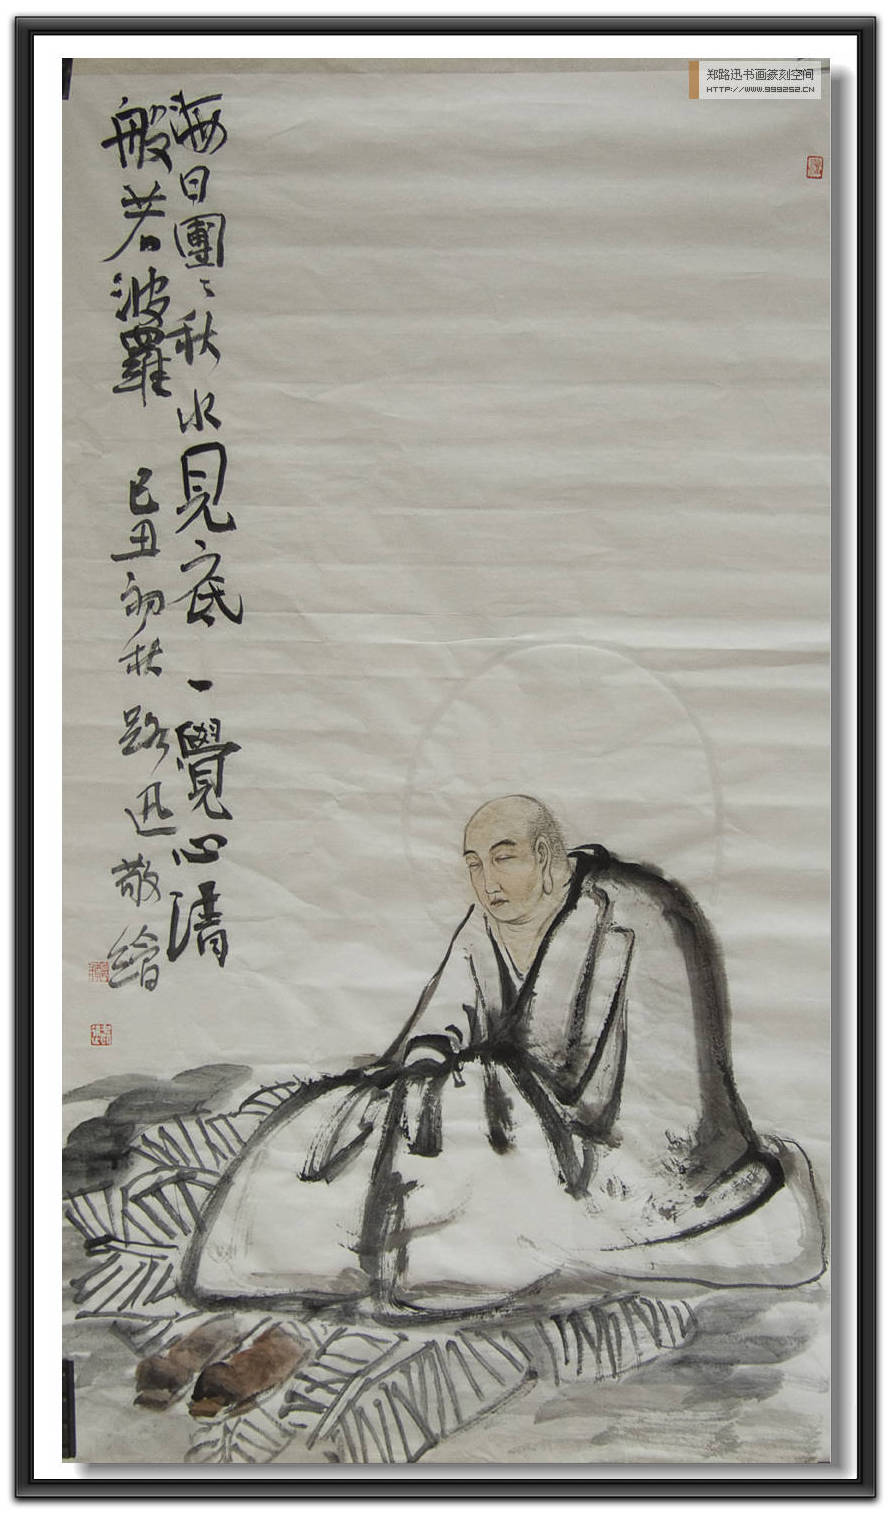 海日團〻秋水見底一覺心清
般若波羅 己丑初秋路迅敬繪
郑路迅书画篆刻空间
HTTP://WWW.999252.CN